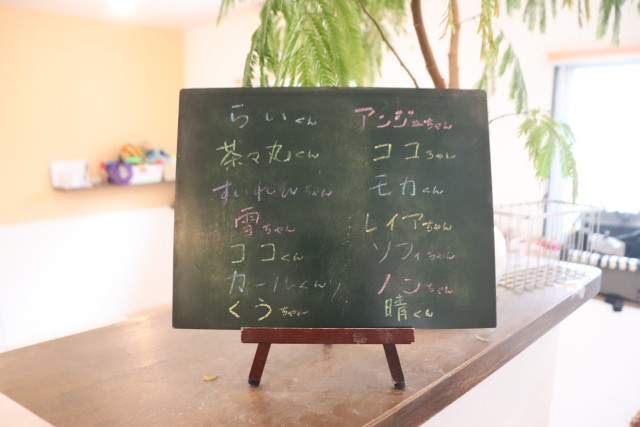 らいくん
茶々丸くん
すいれんちゃん
雪ちゃん
ココくん
カールくん
くうちゃん
アンジュちゃん
ココちゃん
モカくん
レイアちゃん
ソフィちゃん
ノンちゃん
晴くん